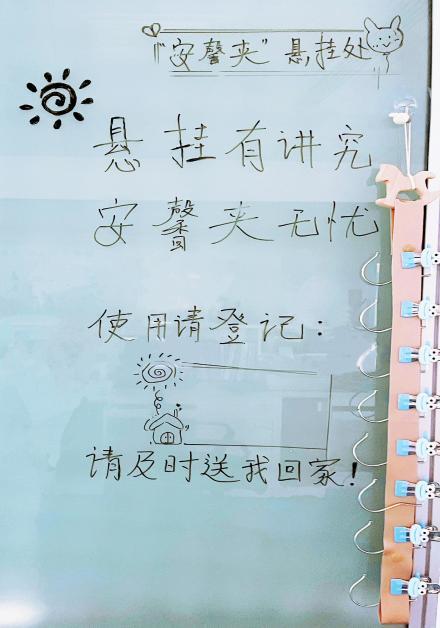 "安馨夹"悬挂处
悬挂有讲究
安馨夹无忧
使用请登记：
请及时送我回家！